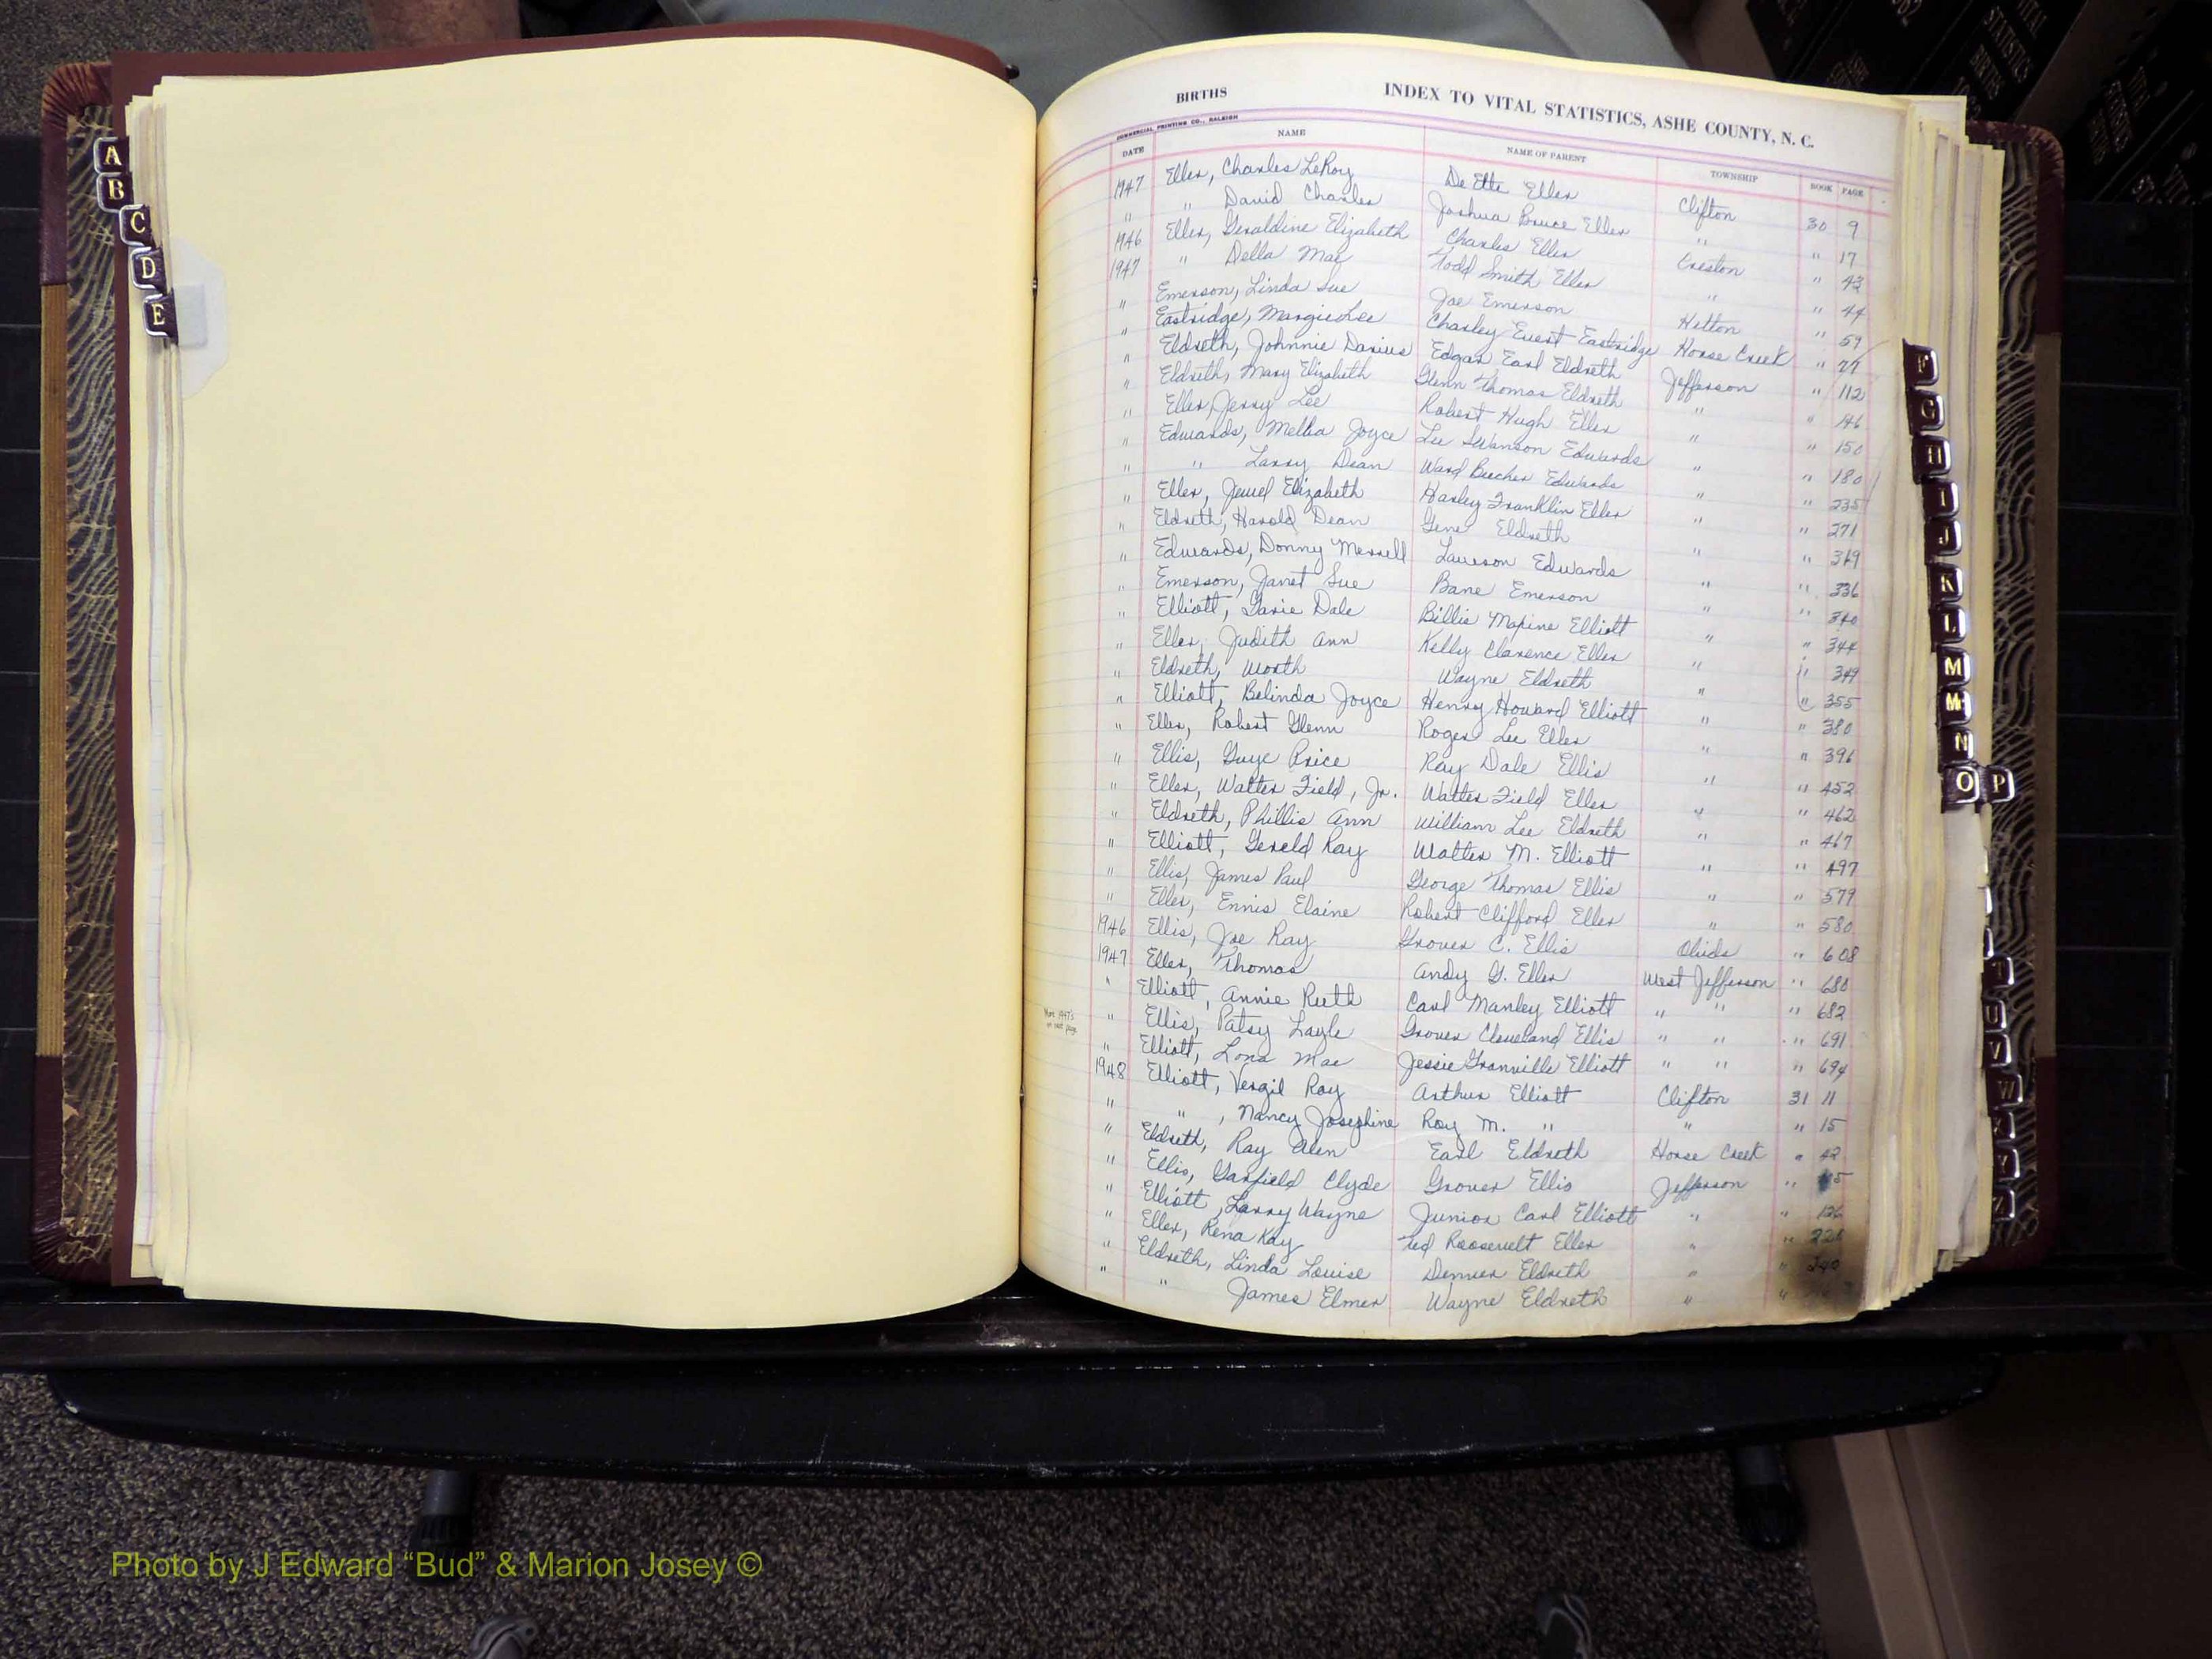 BIRTHS INDEX TO VITAL STATISTICS, ASHE COUNTY, N. C.
COMMERCIAL PRINTING CO., RALEIGH
DATE NAME NAME OF PARENT TOWNSHIP BOOK PAGE
1947 Eller, Charles LeRoy De Ette Eller Clifton 30 9
" " David Charles Joshua Bruce Eller " " 17
1946 Eller, Geraldine Elizabeth Charles Eller Creston " 43
1947 " Della Mae Todd Smith Eller " " 44
" Emerson, Linda Sue Joe Emerson Helton " 57
" Eastridge, Margie Lee Charley Evert Eastridge Horse Creek " 77
" Eldreth, Johnnie Darius Edgar Earl Eldreth Jefferson " 112
" Eldreth, Mary Elizabeth Glenn Thomas Eldreth " " 146
" Eller, Jerry Lee Robert Hugh Eller " " 150
" Edwards, Melba Joyce Lee Swanson Edwards " " 180
" " Larry Dean Ward Beecher Edwards " " 235
" Eller, Jewel Elizabeth Harley Franklin Eller " " 271
" Eldreth, Harold Dean Gene Eldreth " " 319
" Edwards, Donny Merrell Lawson Edwards " " 336
" Emerson, Janet Sue Bane Emerson " " 340
" Elliott, Garie Dale Billie Maxine Elliott " " 344
" Eller, Judith Ann Kelly Clarence Eller " " 349
" Eldreth, Worth Wayne Eldreth " " 355
" Elliott, Belinda Joyce Henry Howard Elliott " " 380
" Eller, Robert Glenn Roger Lee Eller " " 396
" Ellis, Guye Price Ray Dale Ellis " " 452
" Eller, Walter Field, Jr. Walter Field Eller " " 462
" Eldreth, Phillis Ann William Lee Eldreth " " 467
" Elliott, Gereld Ray Walter M. Elliott " " 497
" Ellis, James Paul George Thomas Ellis " " 579
" Eller, Ennis Elaine Robert Clifford Eller " " 580
1946 Ellis, Joe Ray Grover C. Ellis Obids " 608
1947 Eller, Thomas Andy G. Eller West Jefferson " 680
" Elliott, Annie Ruth Carl Manley Elliott " " " 682
More 1947's on next page
" Ellis, Patsy Layle Grover Cleveland Ellis " " " 691
" Elliott, Lona Mae Jessie Granville Elliott " " " 694
1948 Elliott, Vergil Ray Arthur Elliott Clifton 31 11
" " , Nancy Josephine Roy M. " " " 15
" Eldreth, Ray Alen Earl Eldreth Horse Creek " 42
" Ellis, Garfield Clyde Grover Ellis Jefferson "
" Elliott, Larry Wayne Junior Carl Elliott " " 126
" Eller, Rena Kay Ted Roosevelt Eller " "
" Eldreth, Linda Louise Denver Eldreth " " 240
" " James Elmer Wayne Eldreth " "
A
B
C
D
E
F
G
H
I
J
K
L
M
Mc
N
O P
T
U
V
W
Y
Z
Photo by J Edward “Bud” & Marion Josey ©